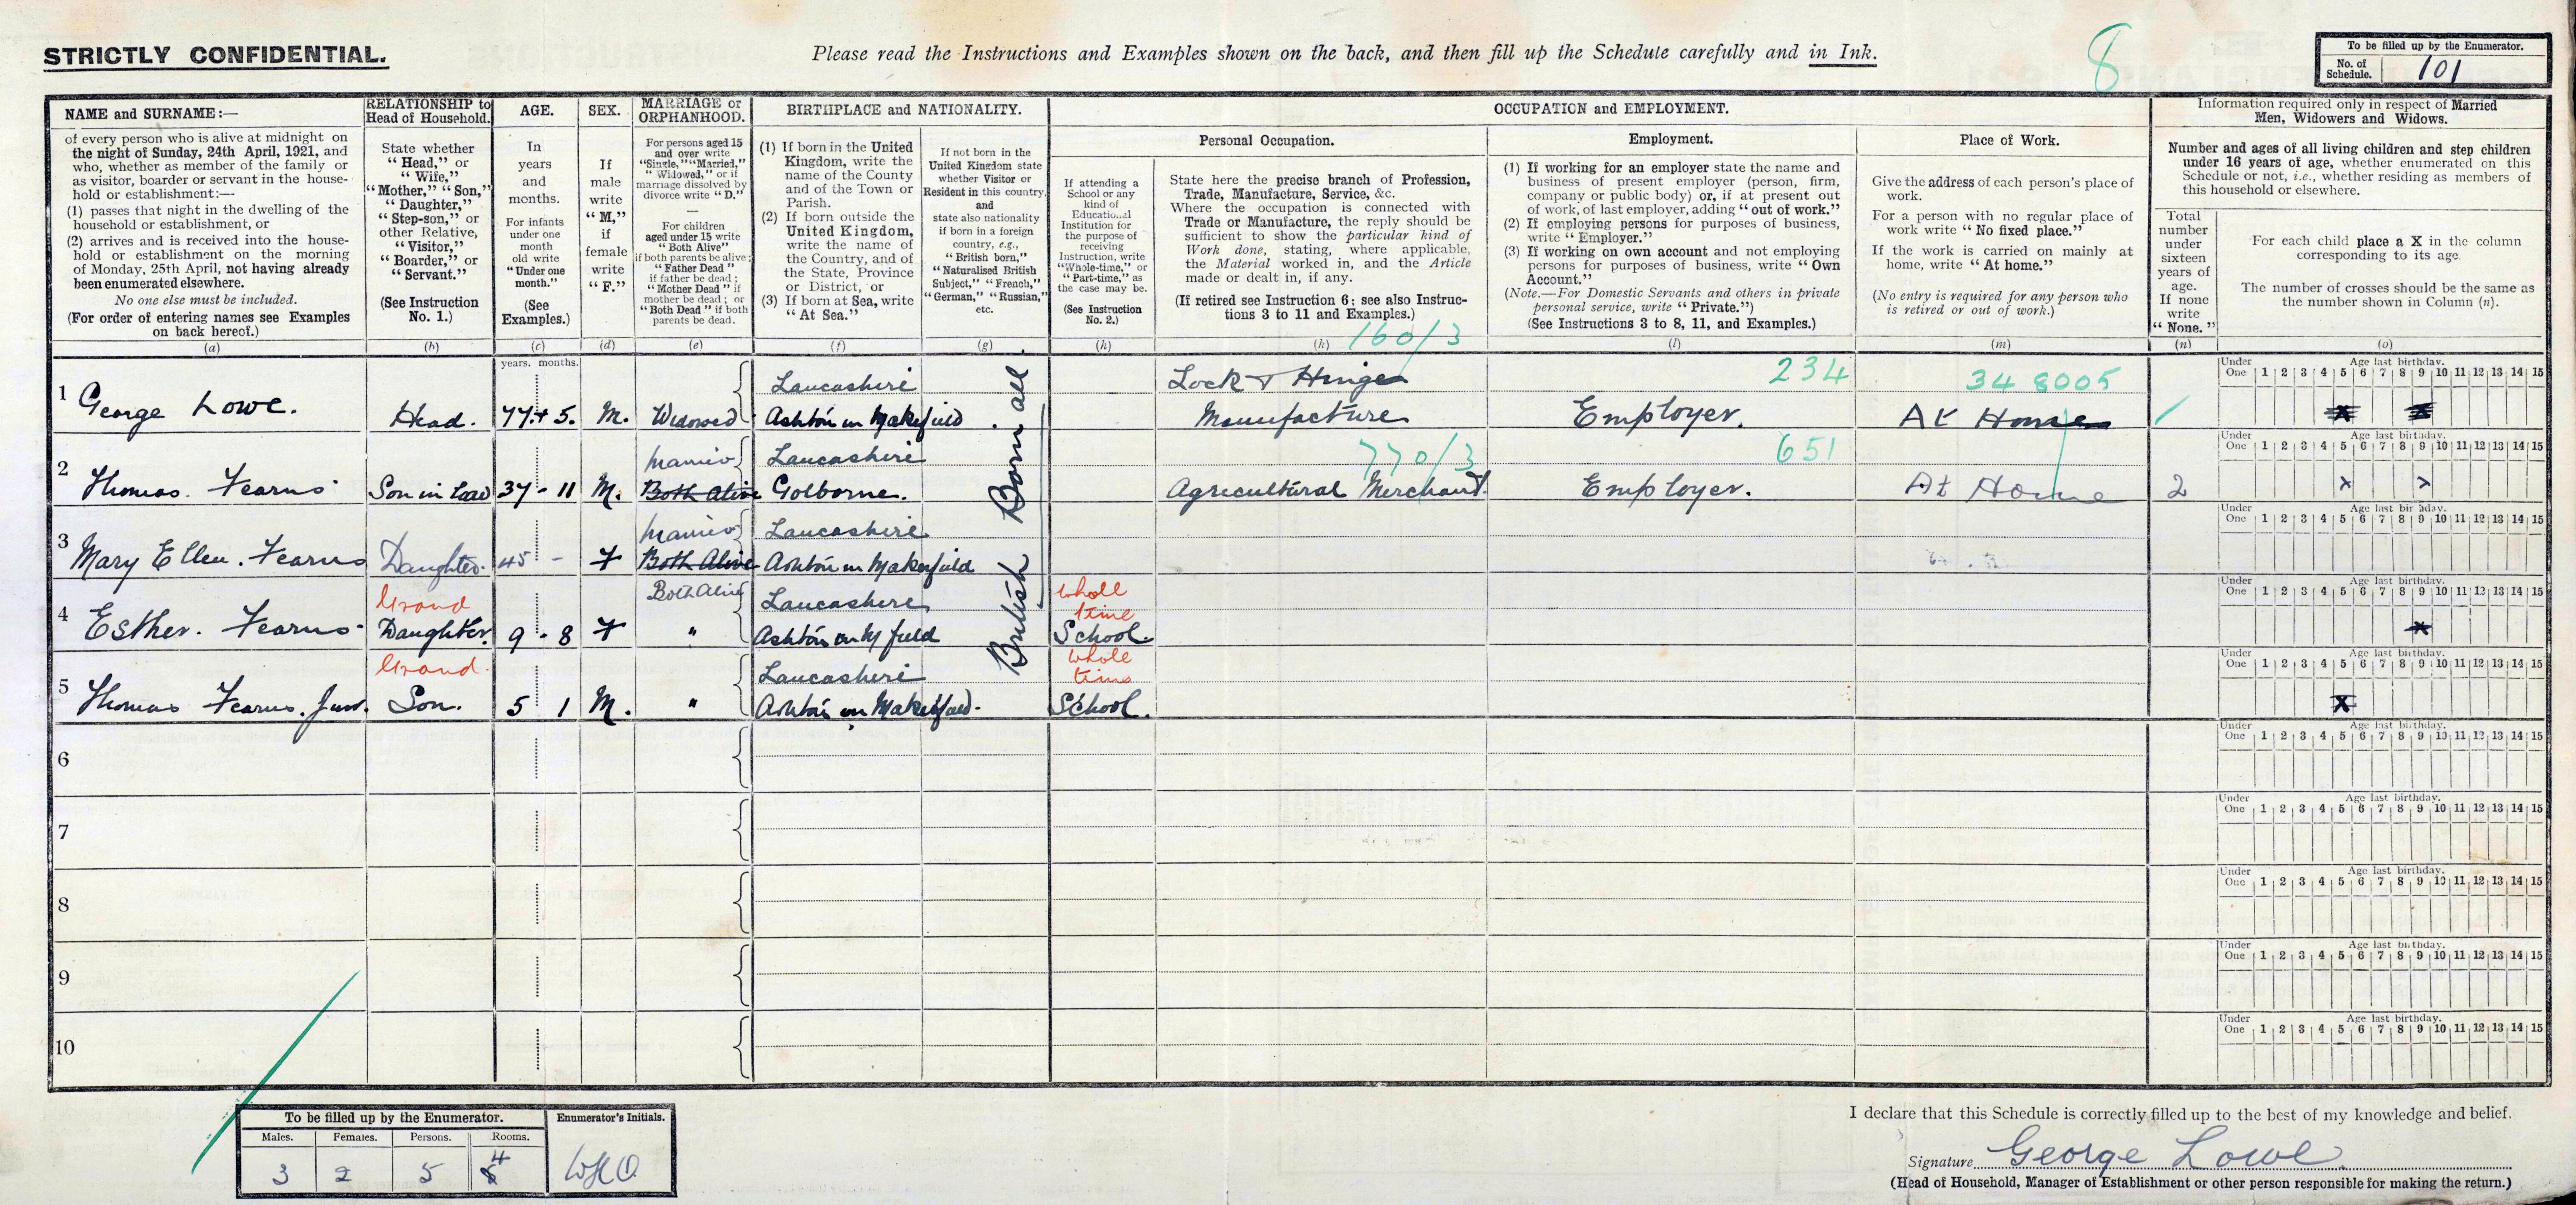 STRICTLY CONFIDENTIAL.
Please read the Instructions and Examples shown on the back, and then fill up the Schedule carefully and in Ink.
8
To be filled up by the Enumerator.
No. of Schedule. 101
NAME and SURNAME:—
of every person who is alive at midnight on
the night of Sunday, 24th April, 1921, and
who, whether as member of the family or
as visitor, boarder or servant in the house-
hold or establishment:—
(1) passes that night in the dwelling of the
household or establishment, or
(2) arrives and is received into the house-
hold or establishment on the morning
of Monday, 25th April, not having already
been enumerated elsewhere.
No one else must be included.
(For order of entering names see Examples
on back hereof.)
(a)
RELATIONSHIP to
Head of Household.
State whether
"Head," or
"Wife,"
"Mother," "Son,"
"Daughter,"
"Step-son," or
other Relative,
"Visitor,"
"Boarder," or
"Servant."
(See Instruction
No. 1.)
(b)
AGE.
In
years
and
months.
For infants
under one
month
old write
"Under one
month."
(See
Examples.)
(c)
SEX.
If
male
write
"M,"
if
female
write
"F."
(d)
MARRIAGE or
ORPHANHOOD.
For persons aged 15
and over write
"Single," "Married,"
"Widowed," or if
marriage dissolved by
divorce write "D."
—
For children
aged under 15 write
"Both Alive"
if both parents be alive;
"Father Dead"
if father be dead;
"Mother Dead" if
mother be dead; or
"Both Dead" if both
parents be dead.
(e)
BIRTHPLACE and NATIONALITY.
(1) If born in the United
Kingdom, write the
name of the County
and of the Town or
Parish.
(2) If born outside the
United Kingdom,
write the name of
the Country, and of
the State, Province
or District, or
(3) If born at Sea, write
"At Sea."
(f)
If not born in the
United Kingdom state
whether Visitor or
Resident in this country.
and
state also nationality
if born in a foreign
country, e.g.,
"British born,"
"Naturalised British
Subject," "French,"
"German," "Russian,"
etc.
(g)
OCCUPATION and EMPLOYMENT.
If attending a
School or any
kind of
Educational
Institution for
the purpose of
receiving
Instruction, write
"Whole-time," or
"Part-time," as
the case may be.
(See Instruction
No. 2.)
(h)
Personal Occupation.
State here the precise branch of Profession,
Trade, Manufacture, Service, &c.
Where the occupation is connected with
Trade or Manufacture, the reply should be
sufficient to show the particular kind of
Work done, stating, where applicable,
the Material worked in, and the Article
made or dealt in, if any.
(If retired see Instruction 6; see also Instruc-
tions 3 to 11 and Examples.)
(k)
Employment.
(1) If working for an employer state the name and
business of present employer (person, firm,
company or public body) or, if at present out
of work, of last employer, adding "out of work."
(2) If employing persons for purposes of business,
write "Employer."
(3) If working on own account and not employing
persons for purposes of business, write "Own
Account."
(Note.—For Domestic Servants and others in private
personal service, write "Private.")
(See Instructions 3 to 8, 11, and Examples.)
(l)
Place of Work.
Give the address of each person's place of
work.
For a person with no regular place of
work write "No fixed place."
If the work is carried on mainly at
home, write "At home."
(No entry is required for any person who
is retired or out of work.)
(m)
Information required only in respect of Married
Men, Widowers and Widows.
Number and ages of all living children and step children
under 16 years of age, whether enumerated on this
Schedule or not, i.e., whether residing as members of
this household or elsewhere.
Total
number
under
sixteen
years of
age.
If none
write
"None."
(n)
For each child place a X in the column
corresponding to its age.
The number of crosses should be the same as
the number shown in Column (n).
(o)
years. months.
160/3
234
34 8005
Under One 1 2 3 4 5 6 7 8 9 10 11 12 13 14 15
Age last birthday.
Lancashire
Lock & Hinge
1 George Lowe. Head. 77 + 5. M. Widowed Ashton in Makefield Manufacture Employer. At Home X X
British Born all
Under One 1 2 3 4 5 6 7 8 9 10 11 12 13 14 15
Age last birthday.
Married Lancashire 770/3 651
2 Thomas. Fearns Son in Law 37 - 11 M. Both Alive Golborne. Agricultural Merchant. Employer. At Home 2 x x
Under One 1 2 3 4 5 6 7 8 9 10 11 12 13 14 15
Age last birthday.
Married Lancashire
3 Mary Ellen. Fearns Daughter. 45 - F Both Alive Ashton in Makerfield
Under One 1 2 3 4 5 6 7 8 9 10 11 12 13 14 15
Age last birthday.
Grand Both Alive Lancashire whole time
4 Esther. Fearns Daughter. 9 - 8 F " Ashton in M field School. X
Under One 1 2 3 4 5 6 7 8 9 10 11 12 13 14 15
Age last birthday.
Grand Lancashire whole time
5 Thomas Fearns. Jun. Son. 5 1 M. " Ashton in Makerfield. School. X
Under One 1 2 3 4 5 6 7 8 9 10 11 12 13 14 15
Age last birthday.
6
Under One 1 2 3 4 5 6 7 8 9 10 11 12 13 14 15
Age last birthday.
7
Under One 1 2 3 4 5 6 7 8 9 10 11 12 13 14 15
Age last birthday.
8
Under One 1 2 3 4 5 6 7 8 9 10 11 12 13 14 15
Age last birthday.
9
Under One 1 2 3 4 5 6 7 8 9 10 11 12 13 14 15
Age last birthday.
10
Under One 1 2 3 4 5 6 7 8 9 10 11 12 13 14 15
Age last birthday.
To be filled up by the Enumerator.
Males. Females. Persons. Rooms.
3 2 5 4
Enumerator's Initials.
I declare that this Schedule is correctly filled up to the best of my knowledge and belief.
Signature George Lowe
(Head of Household, Manager of Establishment or other person responsible for making the return.)